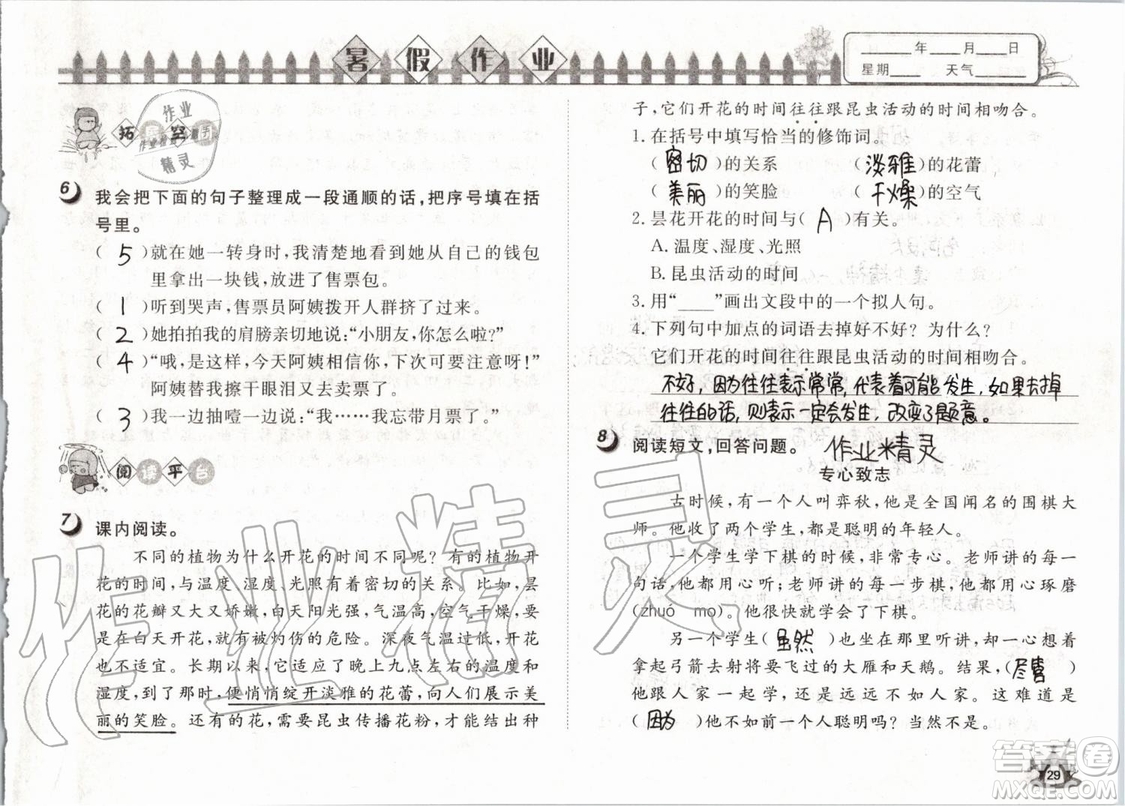 暑假作业
____年____月____日
星期____ 天气____
拓展空间
作业
作业检查
精灵
6 我会把下面的句子整理成一段通顺的话,把序号填在括
号里。
( 5 )就在她一转身时,我清楚地看到她从自己的钱包
里拿出一块钱,放进了售票包。
( 1 )听到哭声,售票员阿姨拨开人群挤了过来。
( 2 )她拍拍我的肩膀亲切地说:“小朋友,你怎么啦?”
( 4 )“哦,是这样,今天阿姨相信你,下次可要注意呀!”
阿姨替我擦干眼泪又去卖票了。
( 3 )我一边抽噎一边说:“我……我忘带月票了。”
阅读平台
7 课内阅读。
不同的植物为什么开花的时间不同呢?有的植物开
花的时间,与温度、湿度、光照有着密切的关系。比如,昙
花的花瓣又大又娇嫩,白天阳光强,气温高,空气干燥,要
是在白天开花,就有被灼伤的危险。深夜气温过低,开花
也不适宜。长期以来,它适应了晚上九点左右的温度和
湿度,到了那时,便悄悄绽开淡雅的花蕾,向人们展示美
丽的笑脸。还有的花,需要昆虫传播花粉,才能结出种
子,它们开花的时间往往跟昆虫活动的时间相吻合。
1. 在括号中填写恰当的修饰词。
( 密切 )的关系 ( 淡雅 )的花蕾
( 美丽 )的笑脸 ( 干燥 )的空气
2. 昙花开花的时间与( A )有关。
A. 温度、湿度、光照
B. 昆虫活动的时间
3. 用“____”画出文段中的一个拟人句。
4. 下列句中加点的词语去掉好不好? 为什么?
它们开花的时间往往跟昆虫活动的时间相吻合。
不好,因为往往表示常常,代表着可能发生,如果去掉
往往的话,则表示一定会发生,改变了题意。
8 阅读短文,回答问题。 作业精灵
专心致志
古时候,有一个人叫弈秋,他是全国闻名的围棋大
师。他收了两个学生,都是聪明的年轻人。
一个学生学下棋的时候,非常专心。老师讲的每一
句话,他都用心听;老师讲的每一步棋,他都用心琢磨
(zhuó mo)。他很快就学会了下棋。
另一个学生( 虽然 )也坐在那里听讲,却一心想着
拿起弓箭去射将要飞过的大雁和天鹅。结果,( 尽管 )
他跟人家一起学,还是远远不如人家。这难道是
( 因为 )他不如前一个人聪明吗?当然不是。
作业精灵
29
答案圈
MXQE.COM